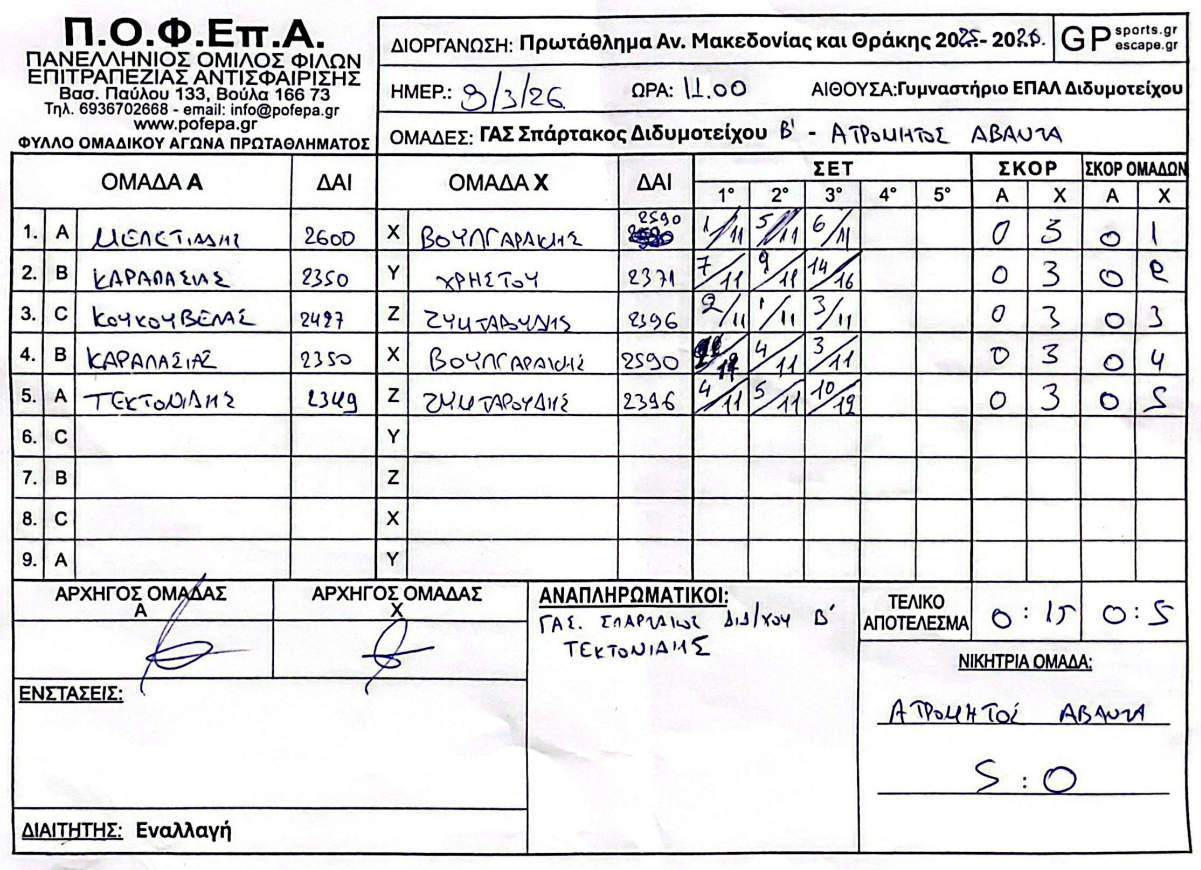 Π.Ο.Φ.Επ.Α.
ΠΑΝΕΛΛΗΝΙΟΣ ΟΜΙΛΟΣ ΦΙΛΩΝ
ΕΠΙΤΡΑΠΕΖΙΑΣ ΑΝΤΙΣΦΑΙΡΙΣΗΣ
Βασ. Παύλου 133, Βούλα 166 73
Τηλ. 6936702668 - email: info@pofepa.gr
www.pofepa.gr
ΦΥΛΛΟ ΟΜΑΔΙΚΟΥ ΑΓΩΝΑ ΠΡΩΤΑΘΛΗΜΑΤΟΣ
ΔΙΟΡΓΑΝΩΣΗ: Πρωτάθλημα Αν. Μακεδονίας και Θράκης 2025 - 2026.
GP sports.gr escape.gr
ΗΜΕΡ.: 9/3/26 ΩΡΑ: 11.00 ΑΙΘΟΥΣΑ: Γυμναστήριο ΕΠΑΛ Διδυμοτείχου
ΟΜΑΔΕΣ: ΓΑΣ Σπάρτακος Διδυμοτείχου Β' - ΑΤΡΟΜΗΤΟΣ ΑΒΑΝΤΑ
ΟΜΑΔΑ Α ΔΑΙ ΟΜΑΔΑ Χ ΔΑΙ ΣΕΤ ΣΚΟΡ ΣΚΟΡ ΟΜΑΔΩΝ
1° 2° 3° 4° 5° Α Χ Α Χ
1. A ΜΕΛΕΤΙΑΔΗΣ 2600 X ΒΟΥΛΓΑΡΑΚΗΣ 2590 1/11 5/11 6/11 0 3 0 1
2. B ΚΑΡΑΠΑΣΙΑΣ 2350 Y ΧΡΗΣΤΟΥ 2371 7/11 9/11 14/16 0 3 0 2
3. C ΚΟΥΚΟΥΒΕΛΑΣ 2427 Z ΖΥΜΤΑΡΟΥΔΗΣ 2396 2/11 1/11 3/11 0 3 0 3
4. B ΚΑΡΑΠΑΣΙΑΣ 2350 X ΒΟΥΛΓΑΡΑΚΗΣ 2590 4/11 3/11 0 3 0 4
5. A ΤΕΚΤΟΝΙΔΗΣ 2349 Z ΖΥΜΤΑΡΟΥΔΗΣ 2396 4/11 5/11 10/12 0 3 0 5
6. C Y
7. B Z
8. C X
9. A Y
ΑΡΧΗΓΟΣ ΟΜΑΔΑΣ Α
ΑΡΧΗΓΟΣ ΟΜΑΔΑΣ Χ
ΑΝΑΠΛΗΡΩΜΑΤΙΚΟΙ:
ΓΑΣ. ΣΠΑΡΤΑΚΟΣ ΔΙΔ/ΧΟΥ Β'
ΤΕΚΤΟΝΙΔΗΣ
ΤΕΛΙΚΟ ΑΠΟΤΕΛΕΣΜΑ 0 : 15 0 : 5
ΝΙΚΗΤΡΙΑ ΟΜΑΔΑ:
ΑΤΡΟΜΗΤΟΣ ΑΒΑΝΤΑ
5 : 0
ΕΝΣΤΑΣΕΙΣ:
ΔΙΑΙΤΗΤΗΣ: Εναλλαγή